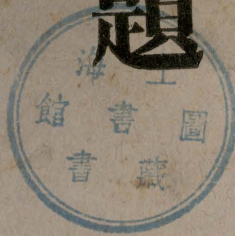 題
上海
圖書館
藏書